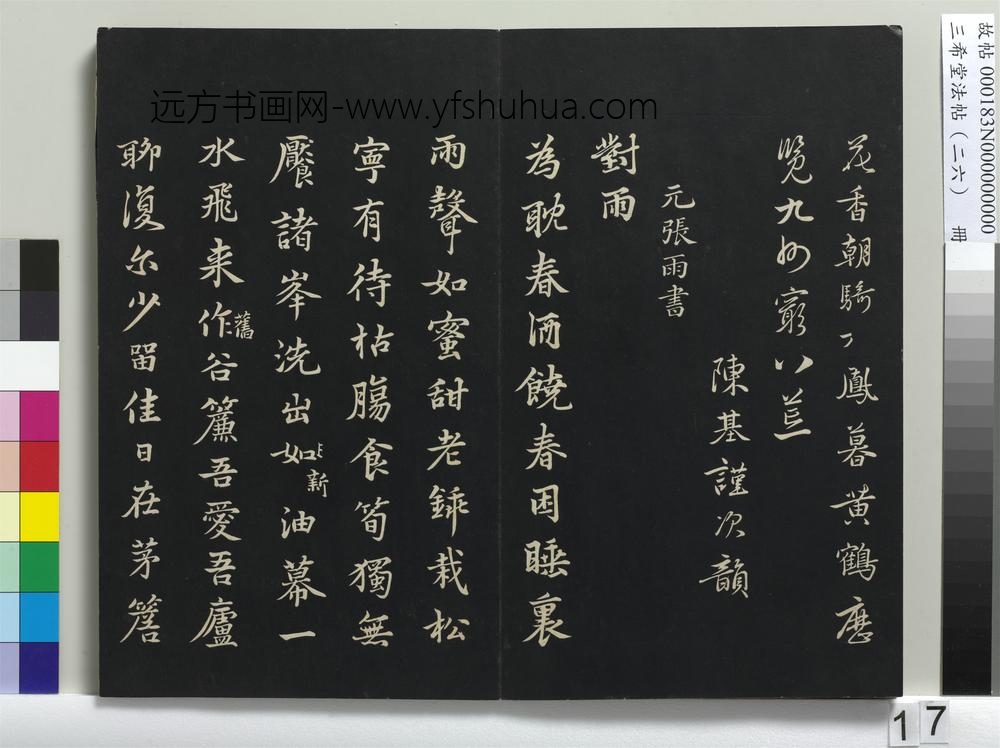 故帖 000183N000000000
三希堂法帖（二六） 冊
远方书画网-www.yfshuhua.com
花香朝騎 鳳暮黄鶴歷
覽九州窮八荒
陳基謹次韻
元張雨書
對雨
為耽春酒饒春困睡裏
雨聲如蜜甜老 栽松
寧有待枯腸食筍獨無
饜諸峯洗出如新油幕一
水飛来作舊谷簾吾愛吾廬
聊復尔少留佳日在茅簷
17